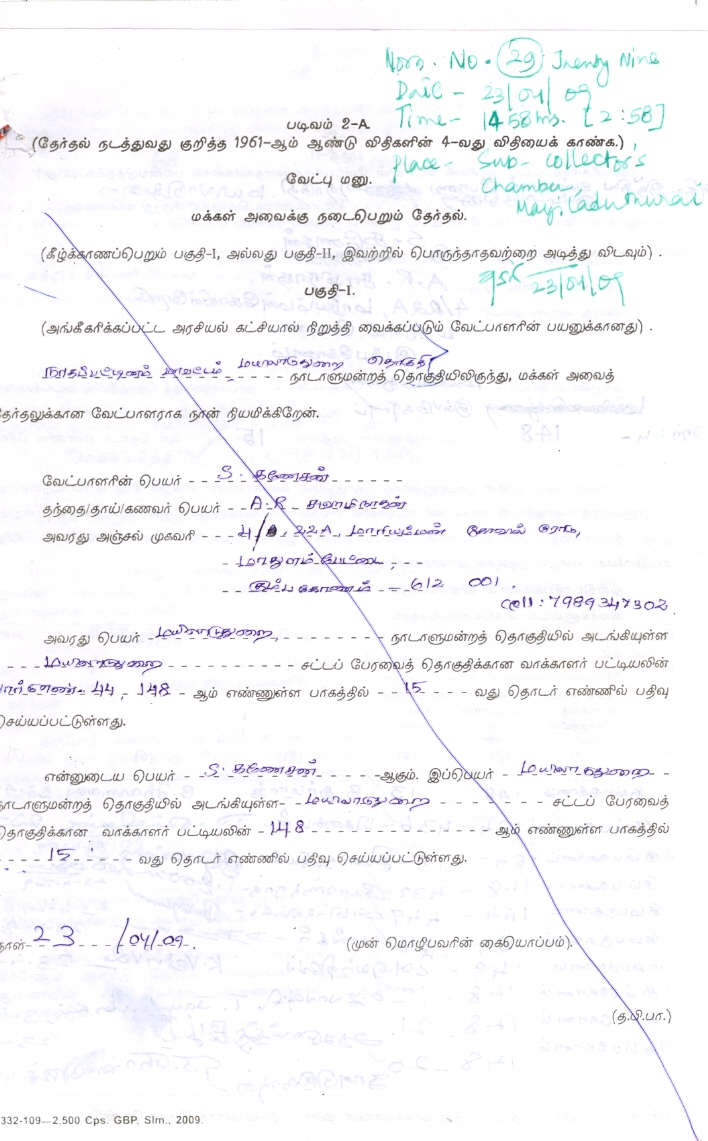 Nom. No. 29 Twenty Nine
Date - 23/04/09
Time - 1458 hrs. [2:58]
படிவம் 2-A.
(தேர்தல் நடத்துவது குறித்த 1961-ஆம் ஆண்டு விதிகளின் 4-வது விதியைக் காண்க.)
Place - Sub-collectors
Chamber,
Mayiladuthurai
வேட்பு மனு.
மக்கள் அவைக்கு நடைபெறும் தேர்தல்.
(கீழ்க்காணப்பெறும் பகுதி-I, அல்லது பகுதி-II, இவற்றில் பொருந்தாதவற்றை அடித்து விடவும்) .
23/04/09
பகுதி-I.
(அங்கீகரிக்கப்பட்ட அரசியல் கட்சியால் நிறுத்தி வைக்கப்படும் வேட்பாளரின் பயனுக்கானது) .
நாகப்பட்டினம் மாவட்டம் மயிலாடுதுறை தொகுதி நாடாளுமன்றத் தொகுதியிலிருந்து, மக்கள் அவைத்
தேர்தலுக்கான வேட்பாளராக நான் நியமிக்கிறேன்.
வேட்பாளரின் பெயர் - - - S. கணேசன் - - - - - -
தந்தை/தாய்/கணவர் பெயர் - - A.R. சுவாமிநாதன்
அவரது அஞ்சல் முகவரி - - - 4/ 22A, மாரியம்மன் கோவில் ரோடு,
மாதுளம்பேட்டை,
கும்பகோணம் - 612 001.
Cell : 7989347302
அவரது பெயர் - மயிலாடுதுறை, - - - - - - - நாடாளுமன்றத் தொகுதியில் அடங்கியுள்ள
- - - மயிலாடுதுறை - - - - - - - - - - சட்டப் பேரவைத் தொகுதிக்கான வாக்காளர் பட்டியலின்
44, 148 - ஆம் எண்ணுள்ள பாகத்தில் - - 15 - - - - வது தொடர் எண்ணில் பதிவு
செய்யப்பட்டுள்ளது.
என்னுடைய பெயர் - - S. கணேசன் - - - - -ஆகும். இப்பெயர் - மயிலாடுதுறை - -
நாடாளுமன்றத் தொகுதியில் அடங்கியுள்ள- மயிலாடுதுறை - - - - - - - - சட்டப் பேரவைத்
தொகுதிக்கான வாக்காளர் பட்டியலின் - 148 - - - - - - - - - - - - - - ஆம் எண்ணுள்ள பாகத்தில்
- - - - 15 - - - - - வது தொடர் எண்ணில் பதிவு செய்யப்பட்டுள்ளது.
நாள்- 23 - - - /04/09.
(முன் மொழிபவரின் கையொப்பம்).
(த.பி.பா.)
332-109—2,500 Cps. GBP, Slm., 2009.